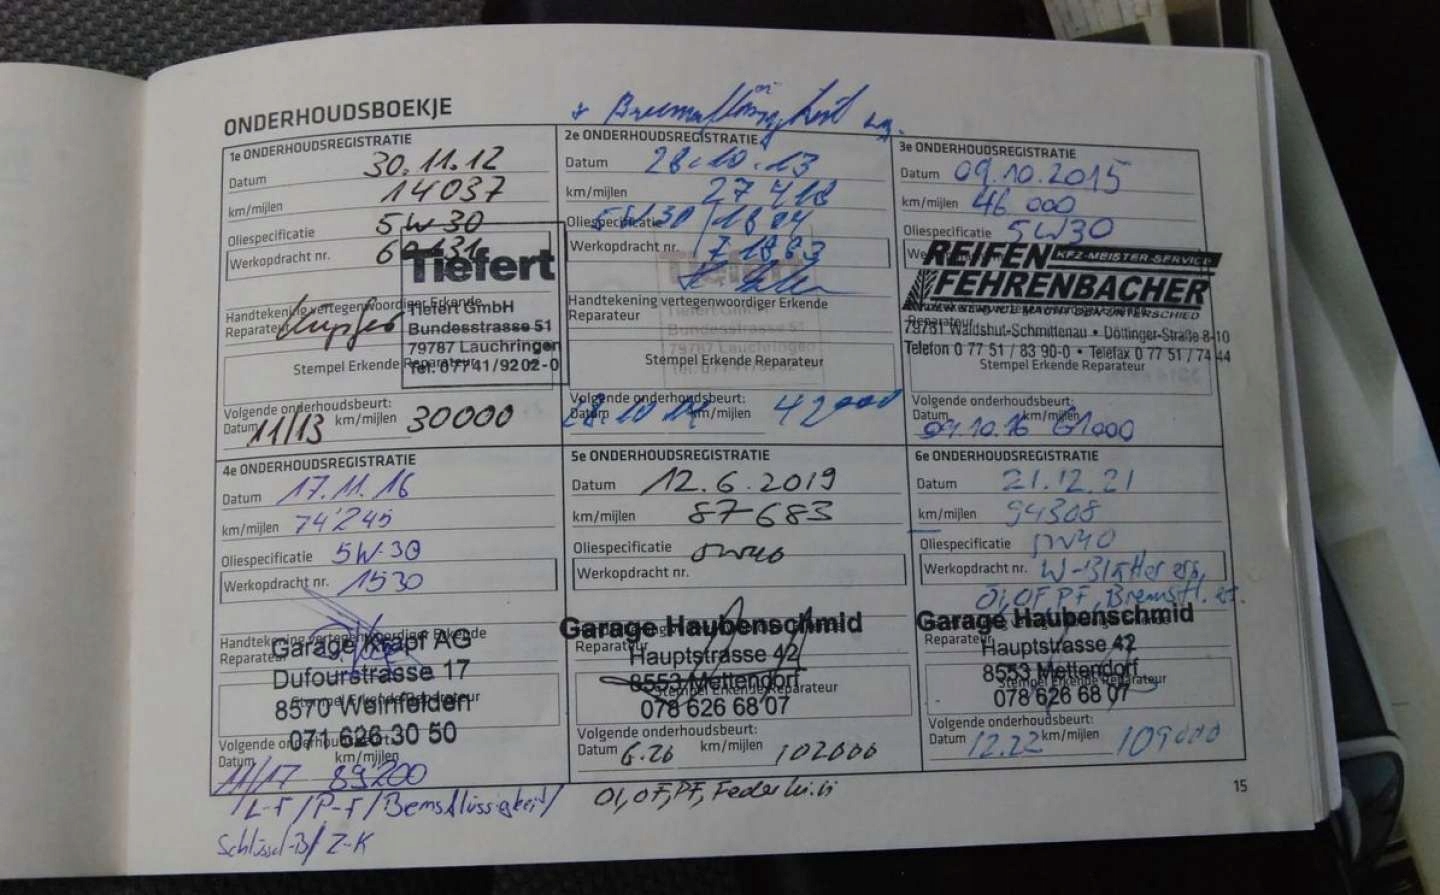 ONDERHOUDSBOEKJE
+ Bremsflüssigkeit
1e ONDERHOUDSREGISTRATIE
Datum 30.11.12
km/mijlen 14037
Oliespecificatie 5W30
Werkopdracht nr.
Handtekening vertegenwoordiger Erkende
Reparateur
Tiefert
Tiefert GmbH
Bundesstrasse 51
79787 Lauchringen
Tel. 07741/9202-0
Stempel Erkende Reparateur
Volgende onderhoudsbeurt:
Datum 11/13 km/mijlen 30000
2e ONDERHOUDSREGISTRATIE
Datum 28.10.13
km/mijlen 27418
Oliespecificatie
Werkopdracht nr.
Handtekening vertegenwoordiger Erkende
Reparateur
Tiefert
Tiefert GmbH
Bundesstrasse 51
79787 Lauchringen
Tel. 07741/9202-0
Stempel Erkende Reparateur
Volgende onderhoudsbeurt:
Datum 28.10.14 km/mijlen 42000
3e ONDERHOUDSREGISTRATIE
Datum 09.10.2015
km/mijlen 46 000
Oliespecificatie 5W30
REIFEN KFZ-MEISTER-SERVICE
FEHRENBACHER
DER SERVICE MACHT DEN UNTERSCHIED
Reparateur
79761 Waldshut-Schmittenau • Döttinger-Straße 8-10
Telefon 0 77 51 / 83 90-0 • Telefax 0 77 51 / 74 44
Stempel Erkende Reparateur
Volgende onderhoudsbeurt:
Datum 09.10.16 km/mijlen 61000
4e ONDERHOUDSREGISTRATIE
Datum 17.11.16
km/mijlen 74'245
Oliespecificatie 5W-30
Werkopdracht nr. 1530
Handtekening vertegenwoordiger Erkende
Reparateur
Garage Krapf AG
Dufourstrasse 17
8570 Weinfelden
071 626 30 50
Stempel Erkende Reparateur
Volgende onderhoudsbeurt:
Datum 11/17 km/mijlen 89'200
L-F/P-F/Bemsflüssigkeit/
Schlüssel-B/Z-K
5e ONDERHOUDSREGISTRATIE
Datum 12.6.2019
km/mijlen 87683
Oliespecificatie 5W40
Werkopdracht nr.
Garage Haubenschmid
Reparateur
Hauptstrasse 42
8553 Mettendorf
078 626 68 07
Stempel Erkende Reparateur
Volgende onderhoudsbeurt:
Datum 6.20 km/mijlen 102000
Öl, OF, PF,
6e ONDERHOUDSREGISTRATIE
Datum 21.12.21
km/mijlen 94308
Oliespecificatie 5W40
Werkopdracht nr. W-Blätter ers,
Öl, OF, PF, Bremsfl. er.
Garage Haubenschmid
Reparateur
Hauptstrasse 42
8553 Mettendorf
078 626 68 07
Stempel Erkende Reparateur
Volgende onderhoudsbeurt:
Datum 12.22 km/mijlen 109000
15